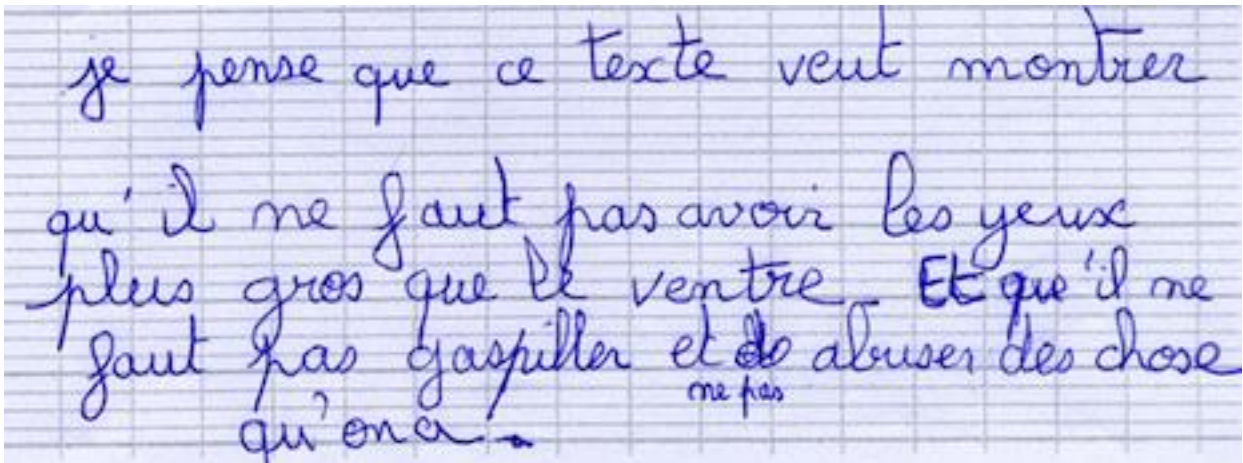 je pense que ce texte veut montrer
qu'il ne faut pas avoir les yeux
plus gros que le ventre. Et que'il ne
faut pas gaspiller et abuser des chose
ne pas
qu'on a.